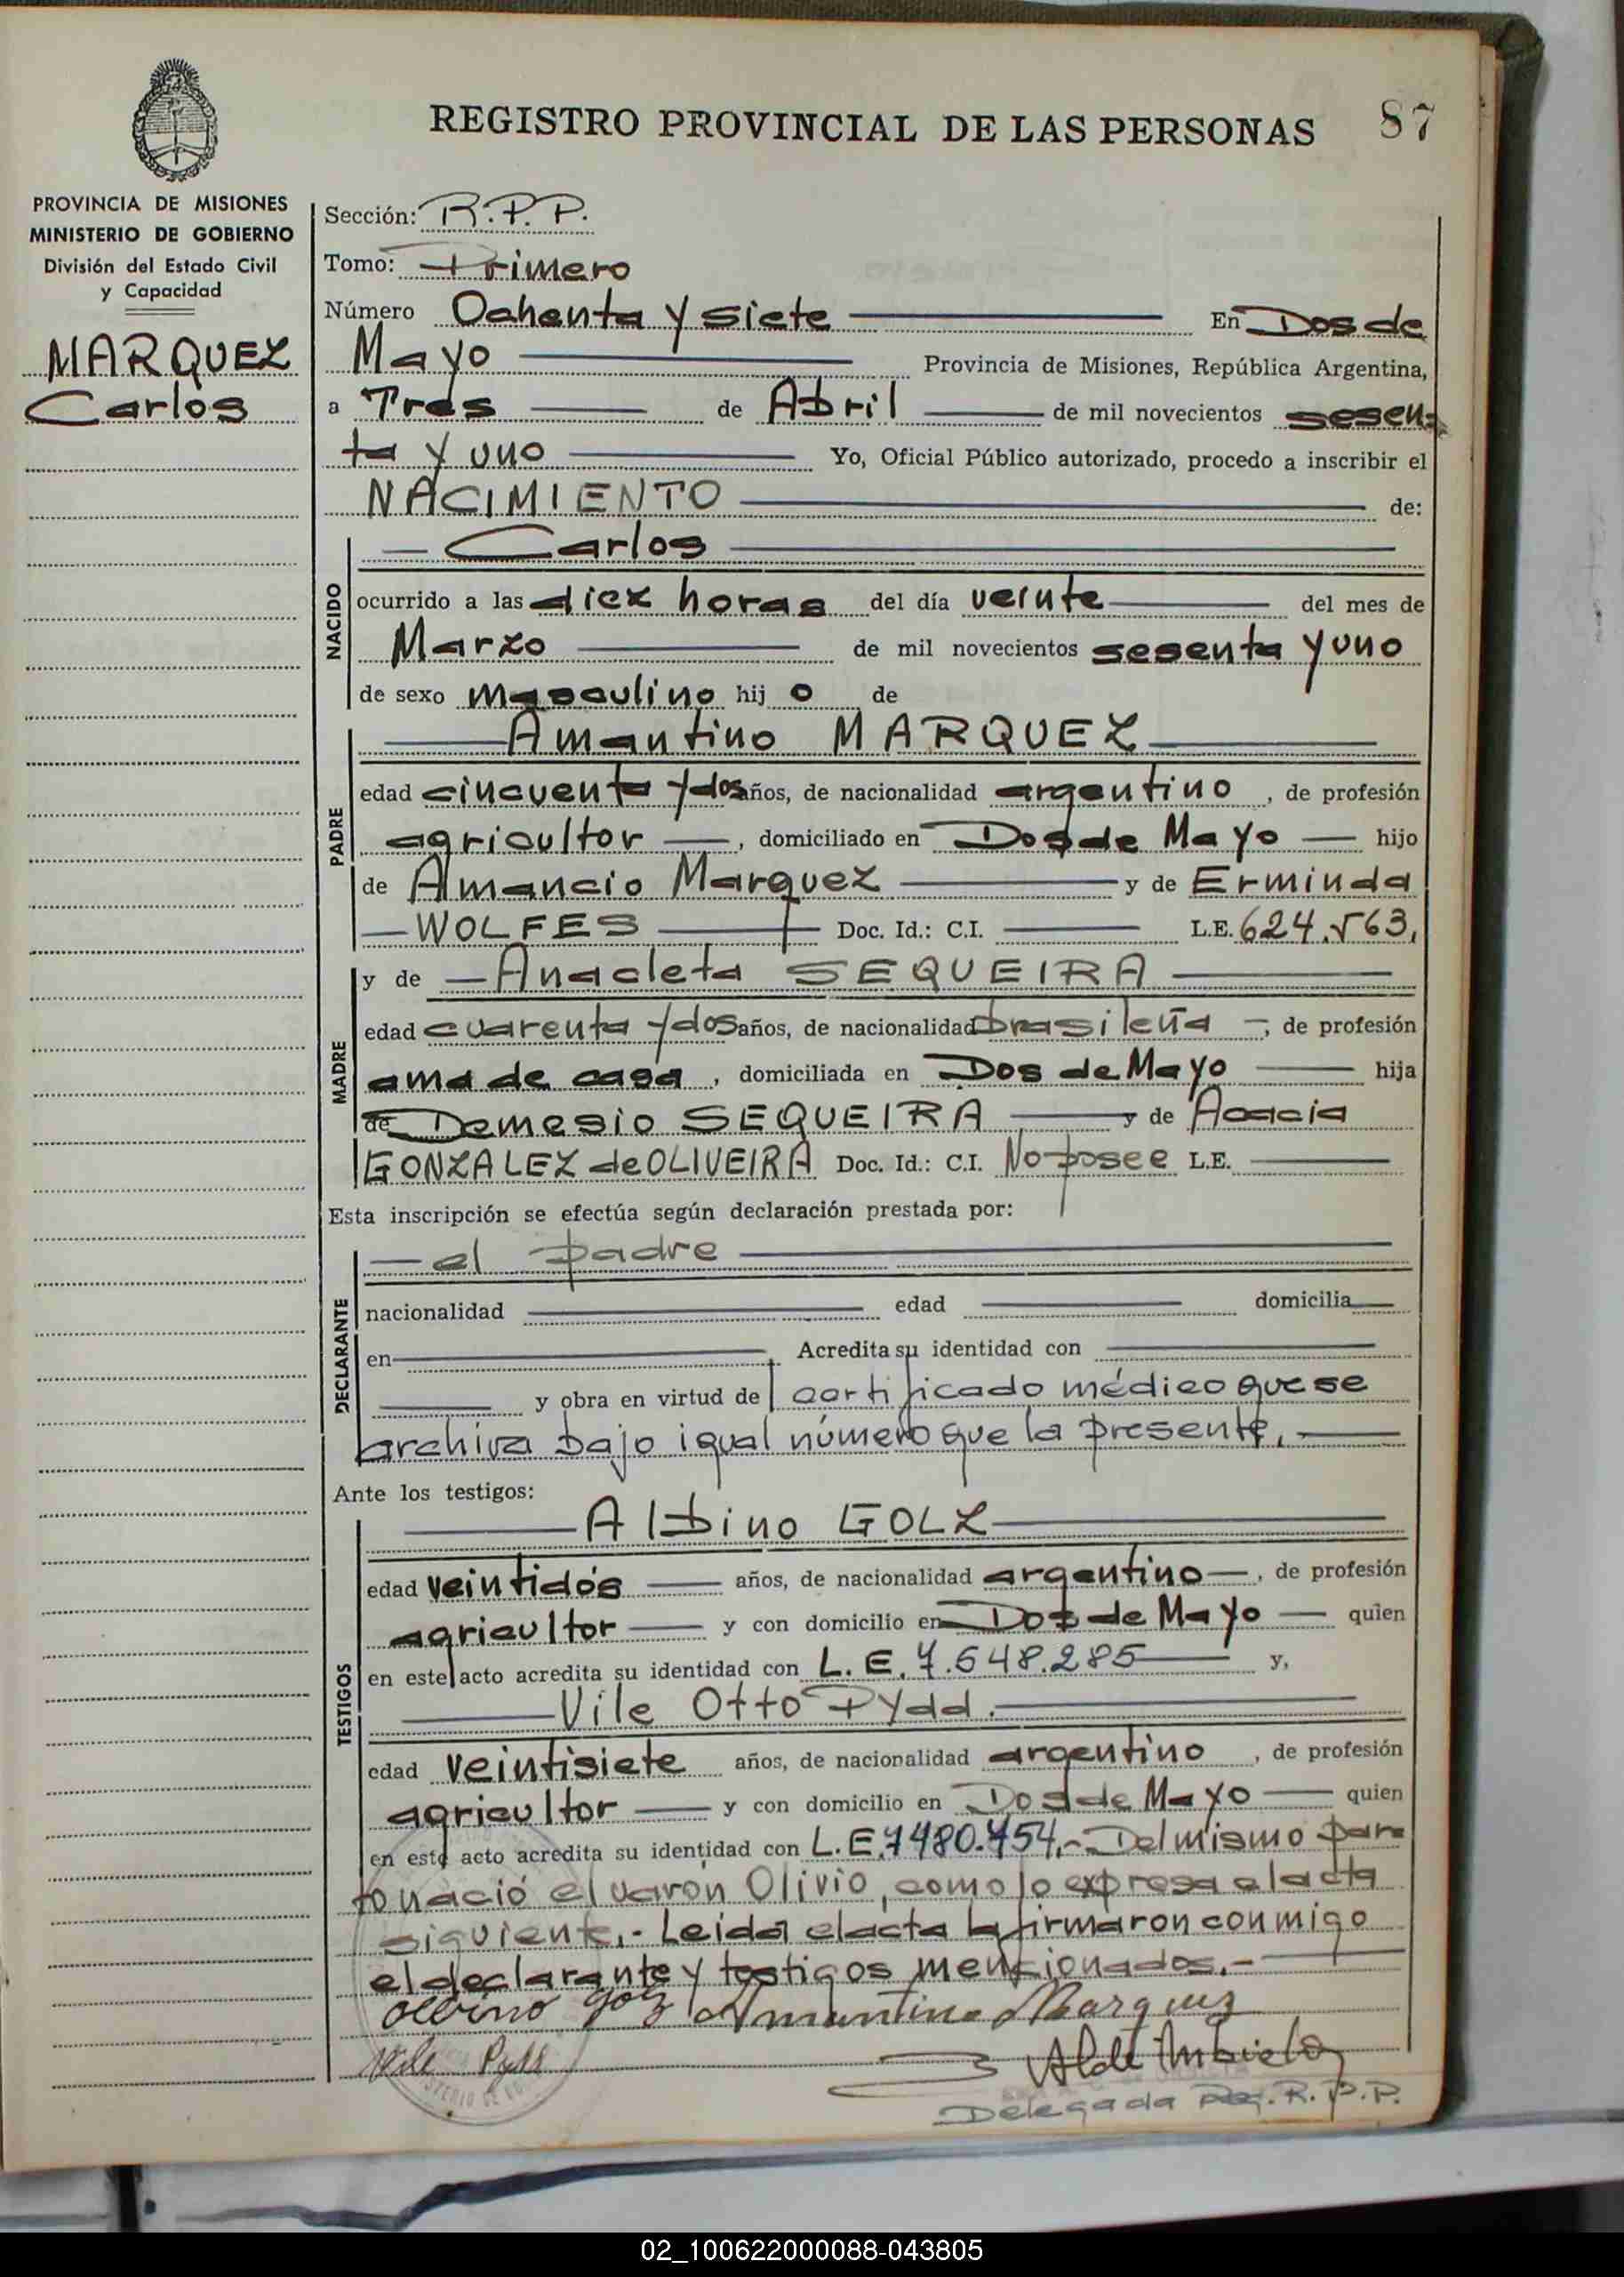 REGISTRO PROVINCIAL DE LAS PERSONAS 87
PROVINCIA DE MISIONES
MINISTERIO DE GOBIERNO
División del Estado Civil
y Capacidad
MARQUEZ
Carlos
Sección: R.P.P.
Tomo: Primero
Número Ochenta y siete En Dos de
Mayo Provincia de Misiones, República Argentina,
a Tres de Abril de mil novecientos sesen-
ta y uno Yo, Oficial Público autorizado, procedo a inscribir el
NACIMIENTO de:
NACIDO
Carlos
ocurrido a las diez horas del día veinte del mes de
Marzo de mil novecientos sesenta y uno
de sexo masculino hij o de
PADRE
Amantino MARQUEZ
edad cincuenta y dos años, de nacionalidad argentino, de profesión
agricultor, domiciliado en Dos de Mayo hijo
de Amancio Marquez y de Erminda
WOLFES Doc. Id.: C.I. L.E. 624.563,
MADRE
y de Anacleta SEQUEIRA
edad cuarenta y dos años, de nacionalidad brasileña, de profesión
ama de casa, domiciliada en Dos de Mayo hija
de Demesio SEQUEIRA y de Acacia
GONZALEZ de OLIVEIRA Doc. Id.: C.I. No posee L.E.
Esta inscripción se efectúa según declaración prestada por:
DECLARANTE
el padre
nacionalidad edad domicilia
en Acredita su identidad con
y obra en virtud de certificado médico que se
archiva bajo igual número que la presente.
Ante los testigos:
TESTIGOS
Albino GOLZ
edad veintidós años, de nacionalidad argentino, de profesión
agricultor y con domicilio en Dos de Mayo quien
en este acto acredita su identidad con L.E. 7.548.285 y,
Vile Otto Pydd.
edad veintisiete años, de nacionalidad argentino, de profesión
agricultor y con domicilio en Dos de Mayo quien
en este acto acredita su identidad con L.E. 7480.454.- Del mismo par
to nació el varón Olivio, como lo expresa el acta
siguiente.- Leída el acta la firmaron conmigo
el declarante y testigos mencionados.-
Albino Golz Amantino Marquez
Vile Pydd
Delegada R.P.P.
02_100622000088-043805